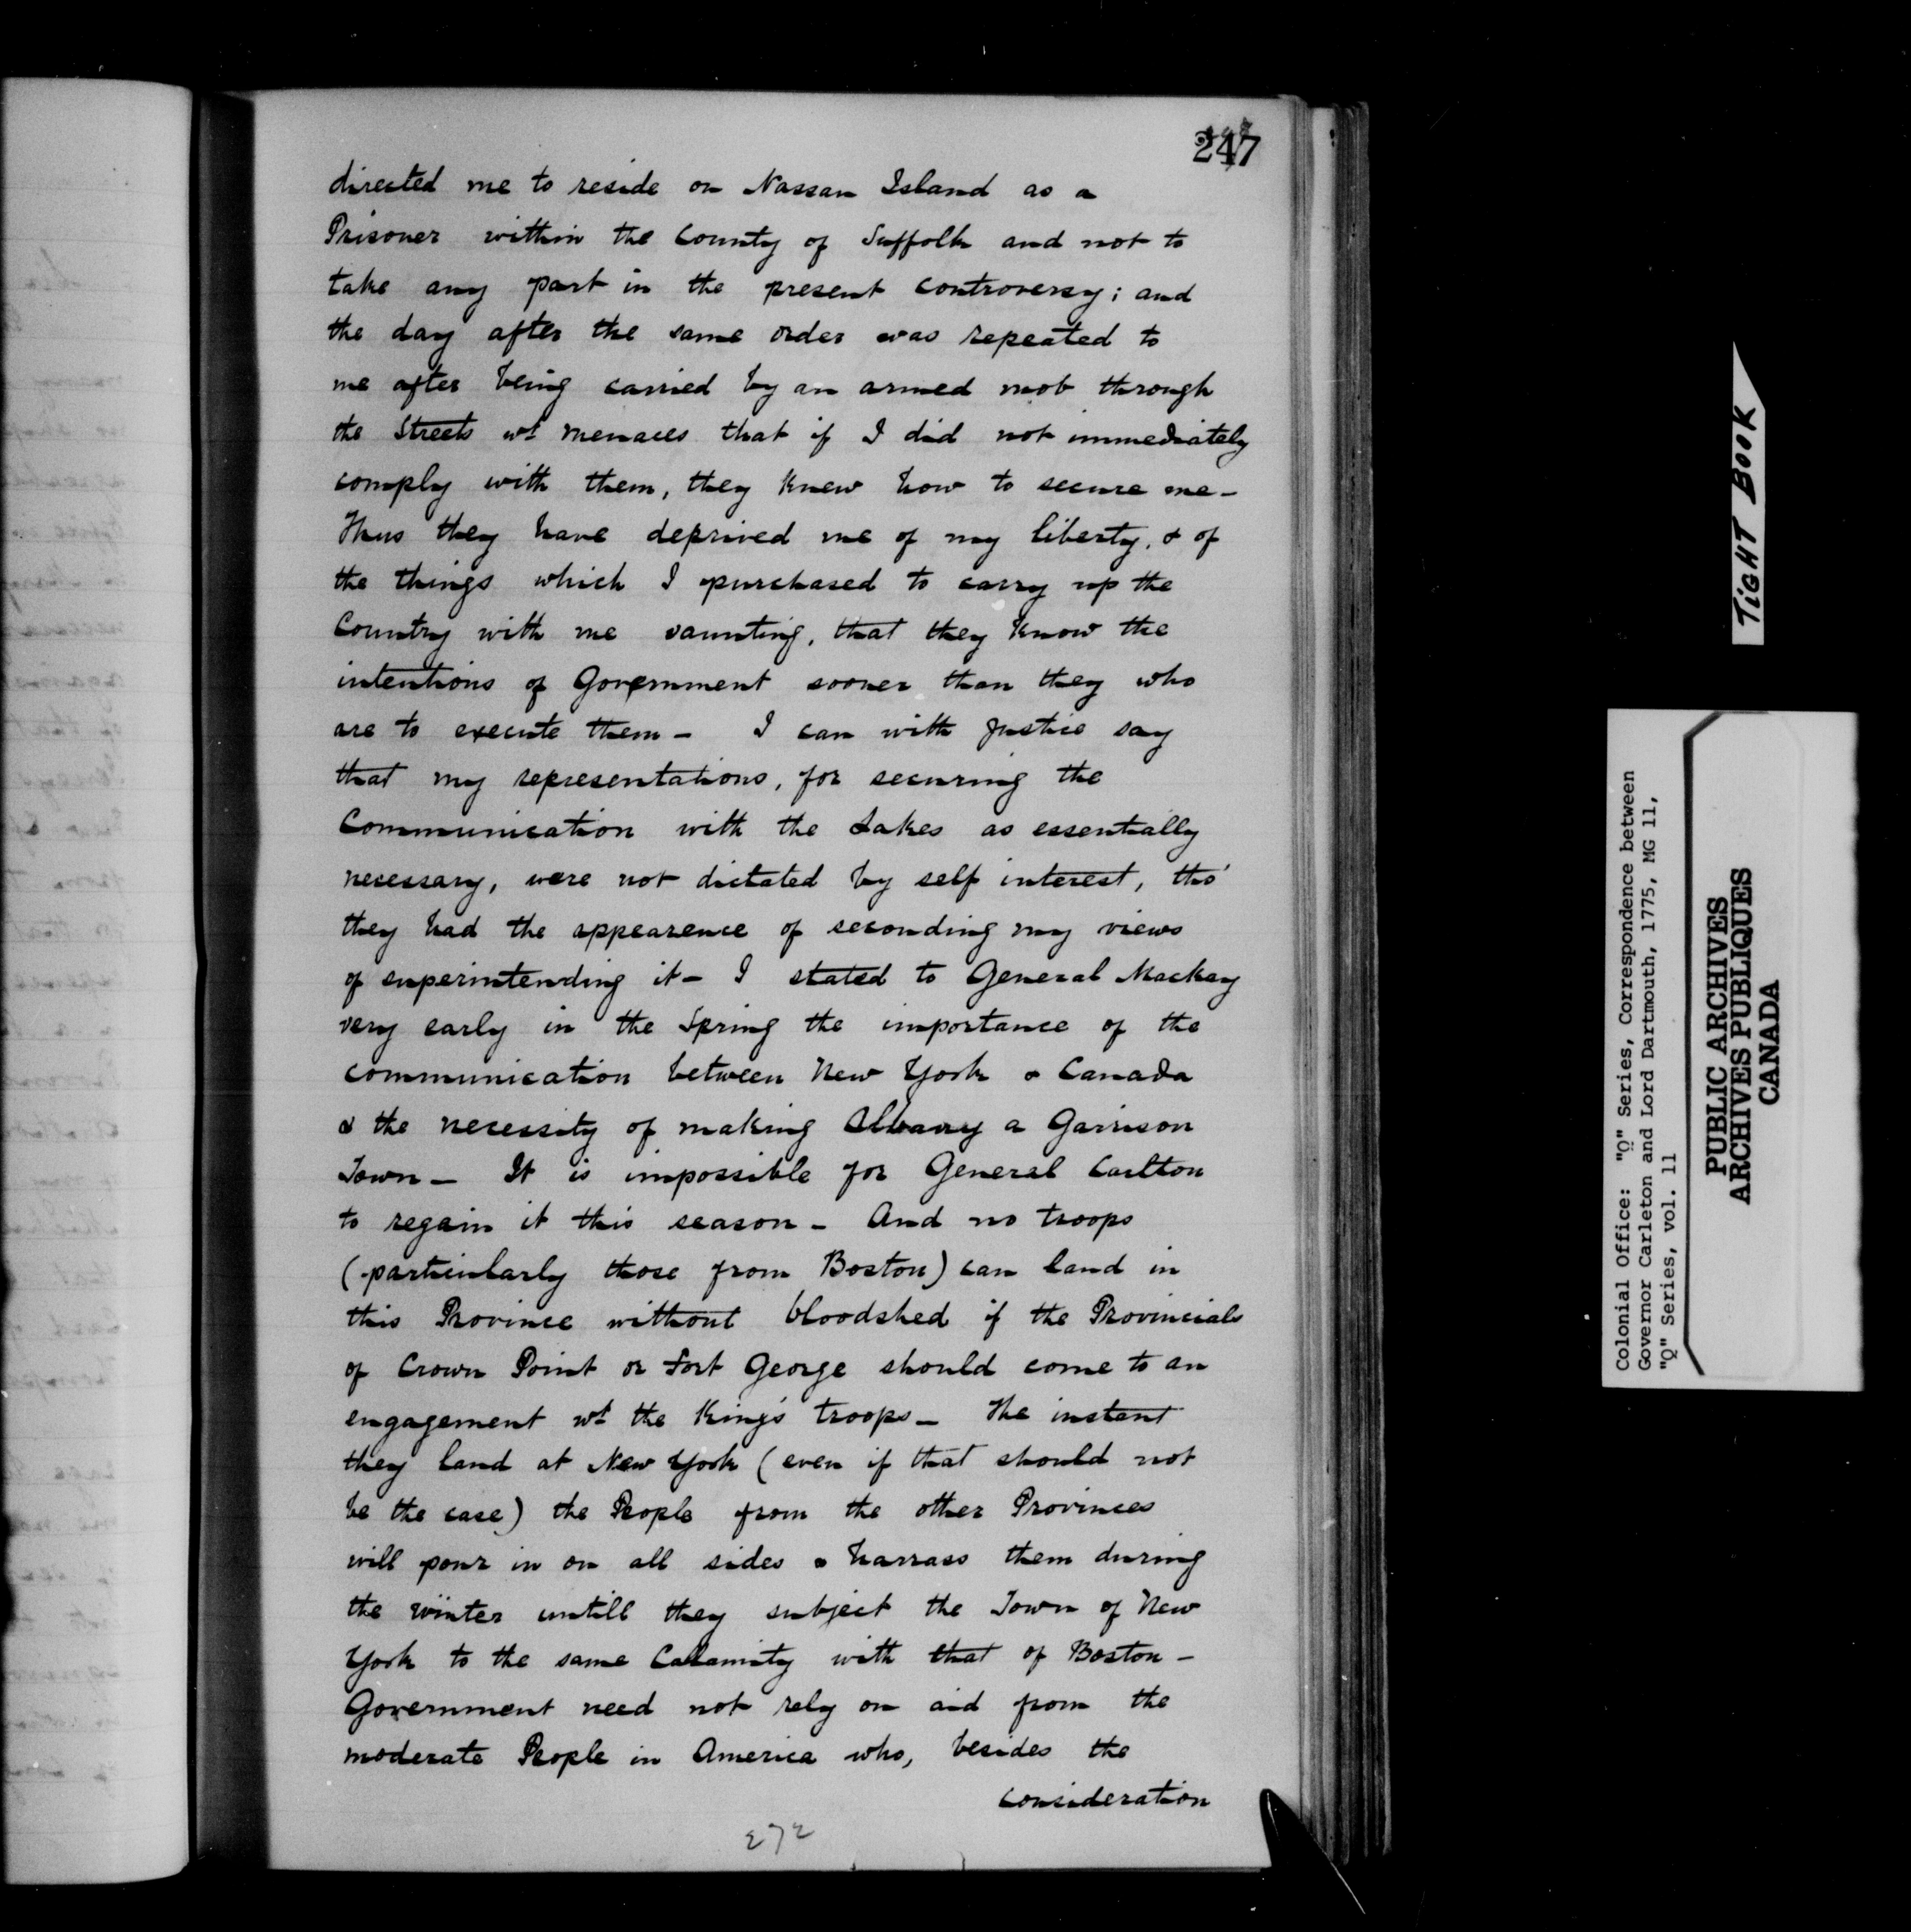 247
directed me to reside on Nassau Island as a
Prisoner within the County of Suffolk and not to
take any part in the present controversy; and
the day after the same order was repeated to
me after being carried by an armed mob through
the Streets wt menaces that if I did not immediately
comply with them, they knew how to secure me -
Thus they have deprived me of my liberty, & of
the things which I purchased to carry up the
Country with me vaunting, that they know the
intentions of Government sooner than they who
are to execute them - I can with Justice say
that my representations, for securing the
Communication with the Lakes as essentially
necessary, were not dictated by self interest, tho'
they had the appearence of seconding my views
of superintending it - I stated to General Mackay
very early in the Spring the importance of the
communication between New York & Canada
& the necessity of making Albany a Garrison
Town - It is impossible for General Carlton
to regain it this season - And no troops
(particularly those from Boston) can land in
this Province without bloodshed if the Provincials
of Crown Point or Fort George should come to an
engagement wt the King's troops - The instant
they land at New York (even if that should not
be the case) the People from the other Provinces
will pour in on all sides & harrass them during
the winter untill they subject the Town of New
York to the same Calamity with that of Boston -
Government need not rely on aid from the
moderate People in America who, besides the
consideration
272
TIGHT BOOK
Colonial Office: "Q" Series, Correspondence between
Governor Carleton and Lord Dartmouth, 1775, MG 11,
"Q" Series, vol. 11
PUBLIC ARCHIVES
ARCHIVES PUBLIQUES
CANADA